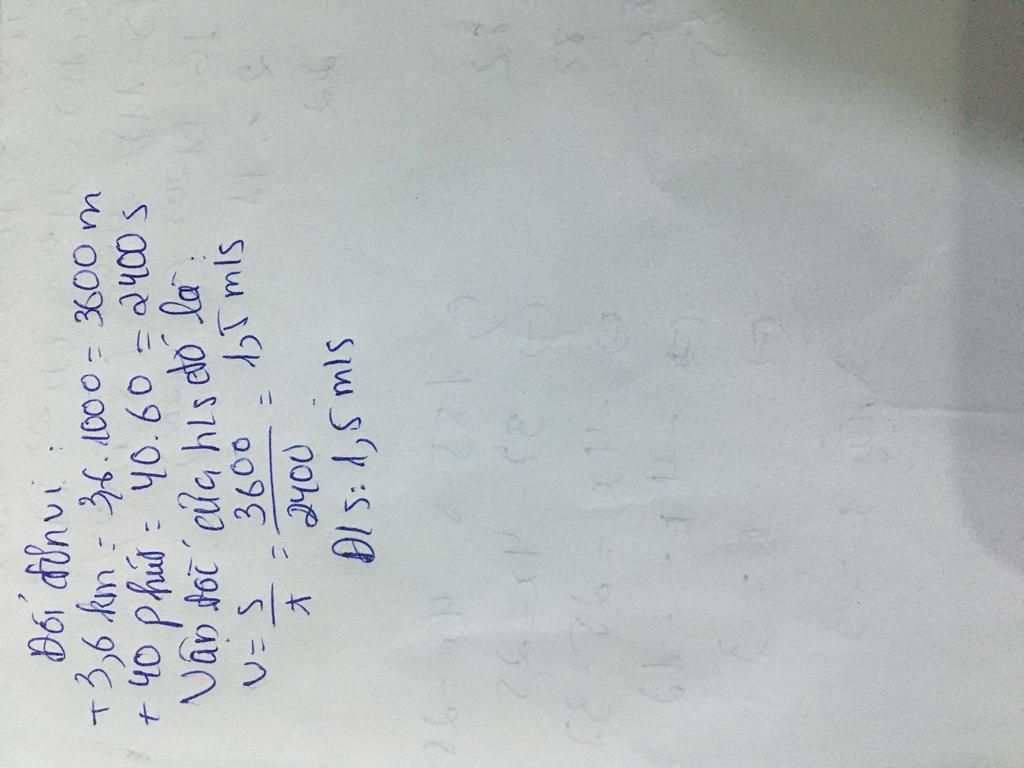 Đổi đơn vị:
+ 3,6 km = 3,6 . 1000 = 3600 m
+ 40 phút = 40 . 60 = 2400 s
Vận tốc của hs đó là:
v = s/t = 3600/2400 = 1,5 m/s
Đ/S: 1,5 m/s